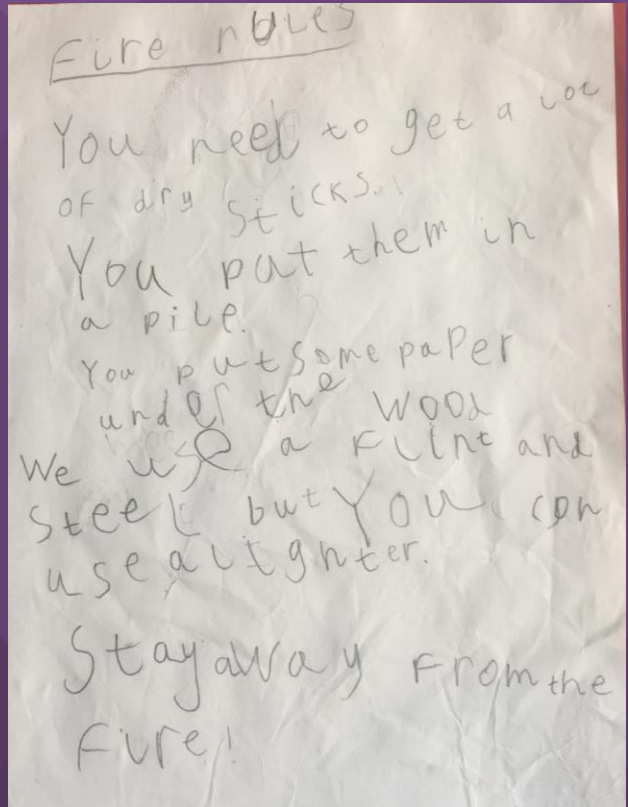 Fire rules
You need to get a lot
of dry sticks.
You put them in
a pile.
You put some paper
under the wood
We use a flint and
steel but You can
use a lighter.
Stay away from the
fire!